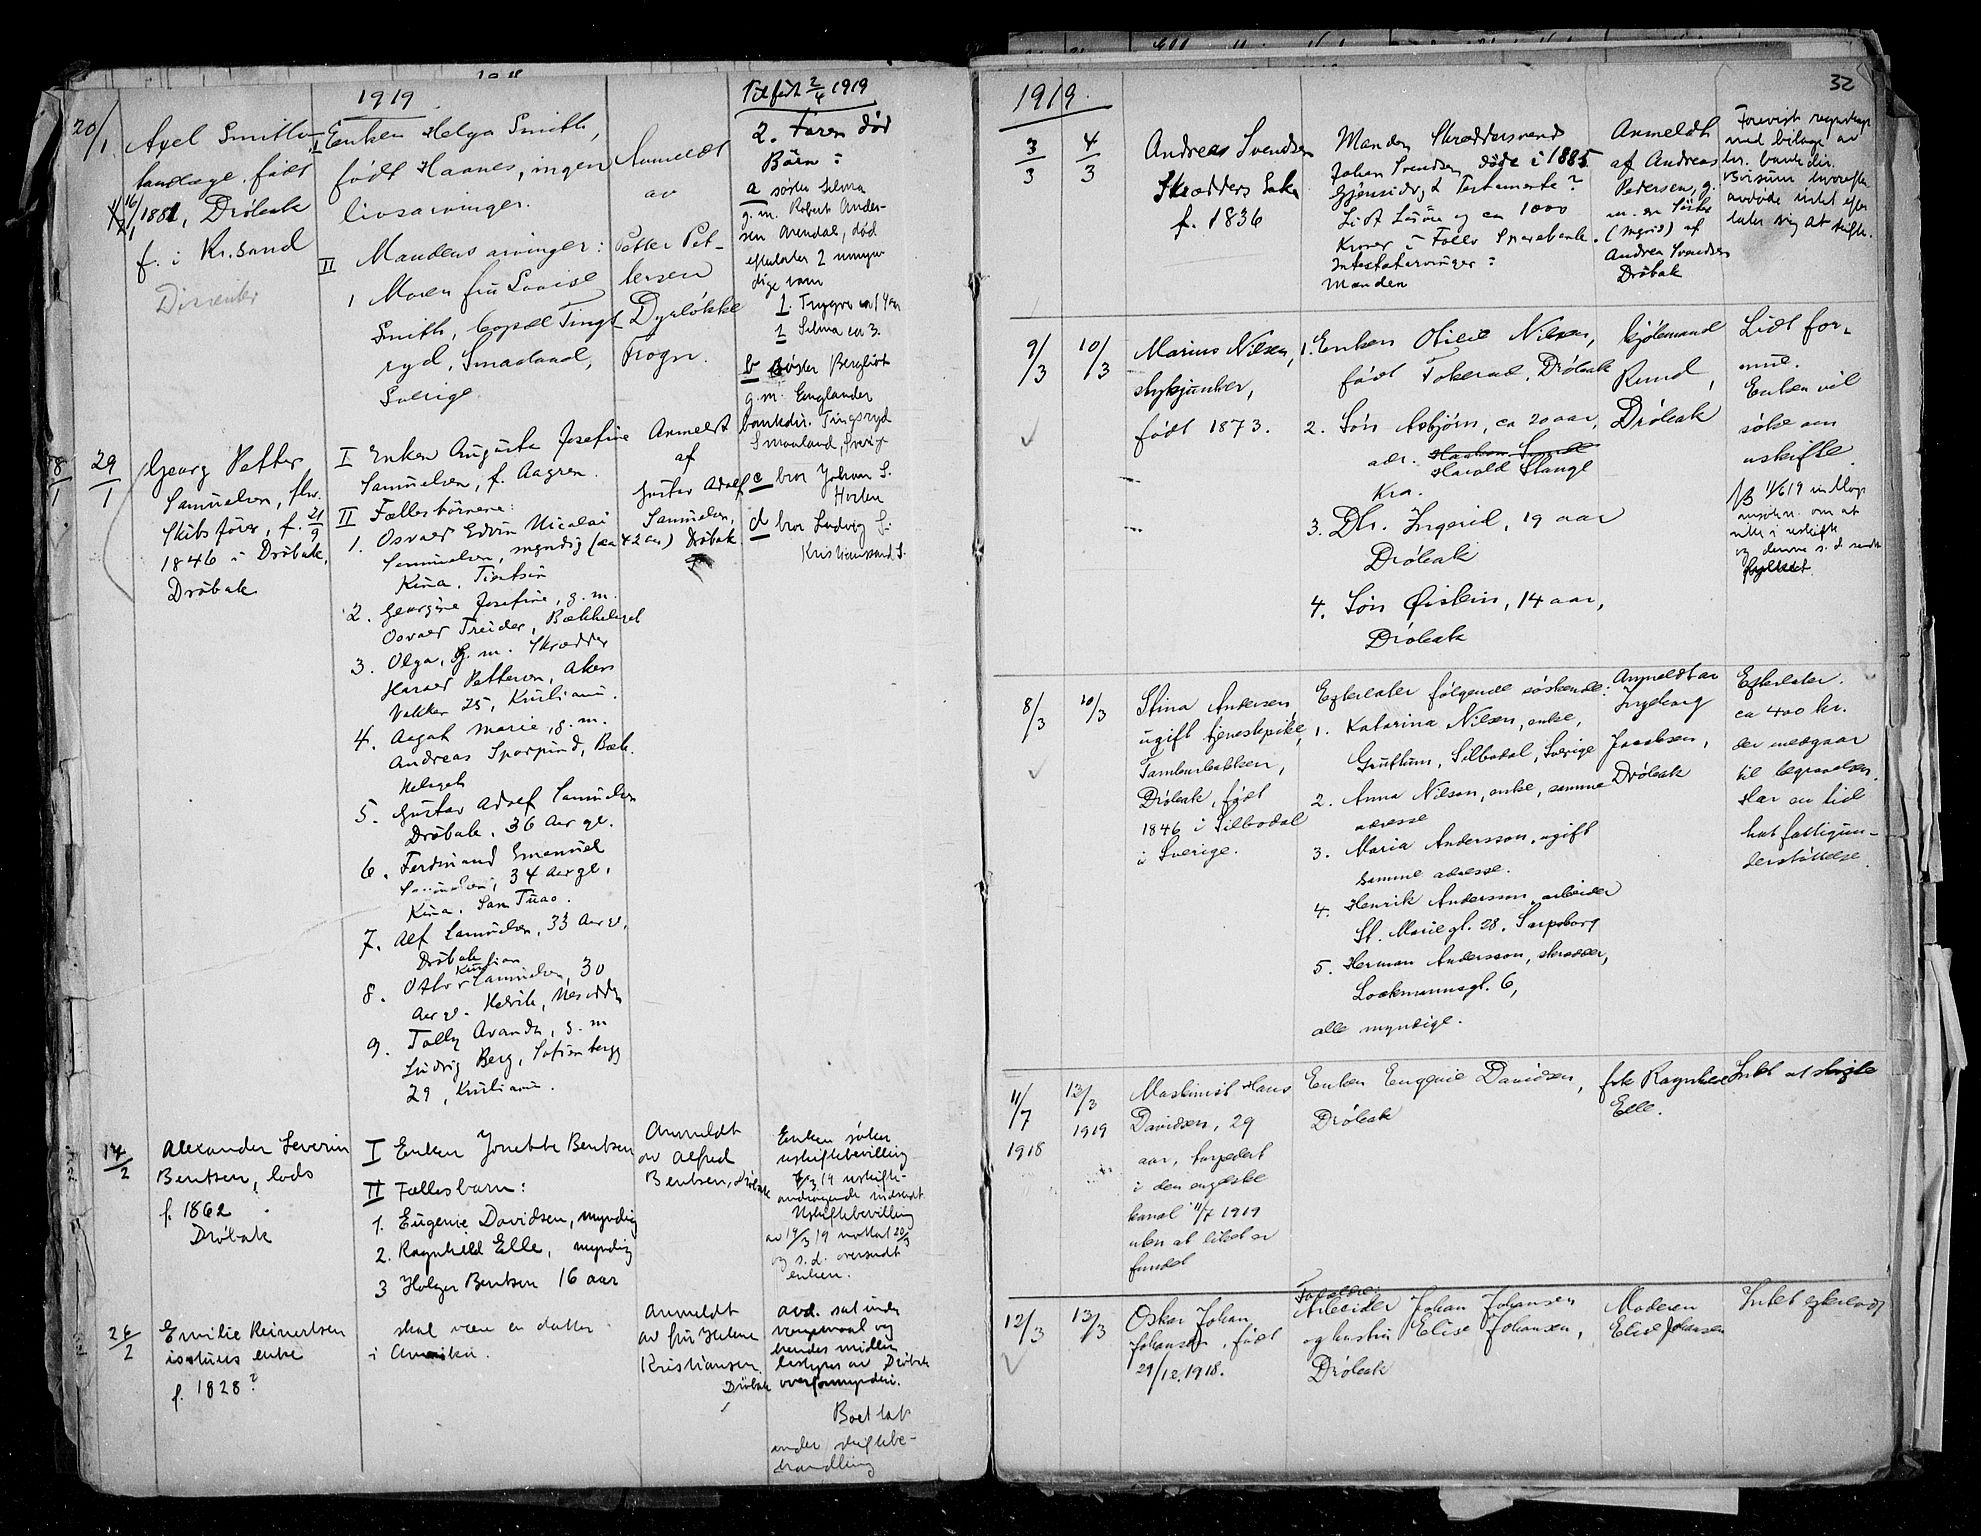 1919
20/1
Axel Smith
tandlæge, født
16/1 1881, Drøbak
f. i Kr.sand
I Enken Helga Smith,
født Hannes, ingen
livsarvinger.
II Mandens arvinger:
1 Moren fru Lovise
Smith, Tings
ryd, Smaaland,
Sverige
Anmeldt
av
Petter Pet-
tersen
Dyrløkke
Frogn.
Tilføit 2/4 1919
2. Faren død
Børn:
a søster Selma
g.m. Robert Ander-
sen Arendal, død
efterlater 2 umyn-
dige barn
1. Trygve ca 14 aar
2 Selma ca 3.
b søster Bergliot
g.m. Englander
bankdir. Tingsryd
Smaaland, Sverige
c bror Johan S.
Horten
d bror Ludvig S.
Kristianssand S.
8/1
29/1
Georg Petter
Samuelsen, fhv.
Skibsfører, f. 21/9
1846 i Drøbak,
Drøbak
I Enken Augusta Josefine
Samuelsen, f. Aagren.
II Fællesbørnene:
1. Osvald Edvin Nicolai
Samuelsen, myndig (ca 42 aar)
Kina. Tientsin
2. Georgine Josefine, g.m.
Osvald Treider, Bækkelaget
3. Olga, g.m. Skrædder
Harald Pettersen, Akers
Vakker 25, Kristiania.
4. Aagot Marie, g.m.
Andreas Sporpind, Bæk-
kelaget
5. Gustav Adolf Samuelsen
Drøbak. 36 Aar gl.
6. Ferdinand Emanuel
Samuelsen, 34 Aar gl.
Kina. San Tuao.
7. Alf Samuelsen, 33 Aar gl.
Drøbak
8. Othar Kristian Samuelsen, 30
Aar gl. Helvik, Nesodden
9. Tolly Avanda, g.m
Ludvig Berg, Sofienberggt
29, Kristiania.
Anmeldt
af
Gustav Adolf
Samuelsen,
Drøbak
14/2
Alexander Severin
Bentsen, lods
f. 1862
Drøbak
I Enken Jonette Bentsen
II Fællesbarn:
1. Eugenie Davidsen, myndig
2. Ragnhild Elle, myndig
3 Holger Bentsen 16 aar
Anmeldt
av Alfred
Bentsen, Drøbak
Enken søker
uskiftebevilling
19 uskifte-
andragende indsendt
Uskiftebevilling
av 19/3 19 mottat 20/3
og s.d. oversendt
enken.
26/2
Emilie Reinertsen
enke
f. 1828?
skal være en datter
i Amerika.
Anmeldt
av fru Helene
Kristiansen
Drøbak
avd. sat under
vergemaal og
hendes midler
bestyres av Drøbak
overformynderi.
Boet tat
under skiftebe-
handling
32
1919.
3/3
4/3
Andrea Svendsen
Skrædders Enke
f. 1836
Manden Skræddersvend
Johan Svendsen døde i 1885
Gjensidig Testamente?
Lidt Løsøre og ca 1000
Kroner i Follo Sparebank.
Intestatarvinger:
Manden
Anmeldt
af Andreas
Pedersen, g.
m. en Søster
(Ingrid) af
Andrea Svendsen
Drøbak
Forevist regnskap
med bilage av
hr. bankdir.
hvorefter
avdøde intet efter
later sig at skifte.
9/3
10/3
Marius Nilsen,
stykjunker,
født 1873.
1. Enken Otilie Nilsen,
født Tokerud, Drøbak
2. Søn Asbjørn, ca 20 aar,
adr.
Harald Stange
Kra.
3. Dtr. Ingerid, 19 aar
Drøbak
4. Søn Øistein, 14 aar,
Drøbak
Kjøbmand
Rund,
Drøbak
Lidt for-
mue.
Enken vil
søke om
uskifte.
8/3
10/3
Stina Andersen,
ugift tjenestepike,
Tamburbakken,
Drøbak, født
1846 i Silbodal
i Sverige.
Efterlater følgende søskende:
1. Katarina Nilsen, enke,
Silbodal, Sverige
2. Anna Nilson, enke, samme
adresse
3. Maria Andersson, ugift
samme adresse.
4. Henrik Andersson, arbeider
St. Marie gt. 28. Sarpsborg
5. Herman Andersson, skrædder,
Lockmannsgt. 6,
alle myndige.
Anmeldt av
Ingeborg
Jacobsen,
Drøbak
Efterlater
ca 400 kr.
der medgaar
til begravelsen.
Har en tid
hat fattigun-
derstøttelse.
11/7
1918
12/3
1919
Maskinist Hans
Davidsen, 29
aar, torpedert
i den engelske
kanal 11/7 1919
uten at liket er
fundet
Enken Eugenie Davidsen,
Drøbak
frk Ragnhild
Elle.
Intet at skifte
12/3
13/3
Oskar Johan
Johansen, født
29/12.1918.
Forældre:
Arbeider Johan Johansen
og hustru Elise Johansen,
Drøbak
Moderen
Elise Johansen
Intet efterladt